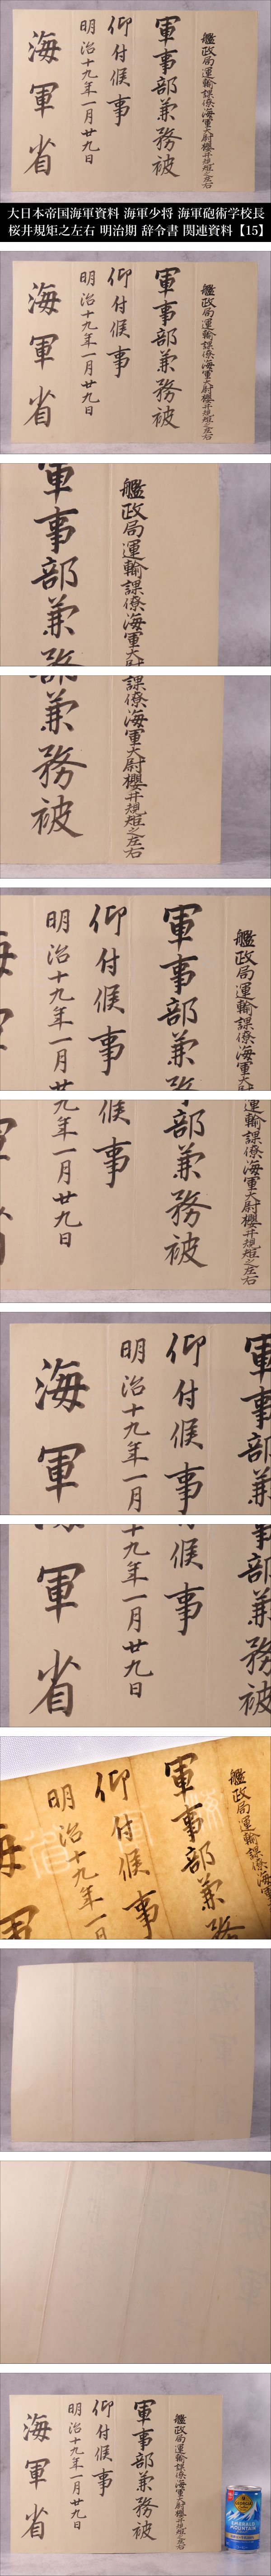 艦政局運輸課僚海軍大尉櫻井規矩之左右
軍事部兼務被
仰付候事
明治十九年一月廿九日
海軍省
大日本帝国海軍資料 海軍少将 海軍砲術学校長
桜井規矩之左右 明治期 辞令書 関連資料【15】
艦政局運輸課僚海軍大尉櫻井規矩之左右
軍事部兼務被
仰付候事
明治十九年一月廿九日
海軍省
艦政局運輸課僚海軍大尉
軍事部兼務
課僚海軍大尉櫻井規矩之左右
部兼務被
艦政局運輸課僚海軍大尉
軍事部兼務
仰付候事
明治十九年一月廿
海
運輸課僚海軍大尉櫻井規矩之左右
事部兼務被
候事
九年一月廿九日
軍事部兼
仰付候事
明治十九年一月
海軍
事部兼務被
候事
十九年一月廿九日
軍省
艦政局運輸課僚海軍
軍事部兼務
仰付候事
明治十九年一月
海軍
省
艦政局運輸課僚海軍大尉櫻井規矩之左右
軍事部兼務被
仰付候事
明治十九年一月廿九日
海軍省
GEORGIA
EMERALD
MOUNTAIN